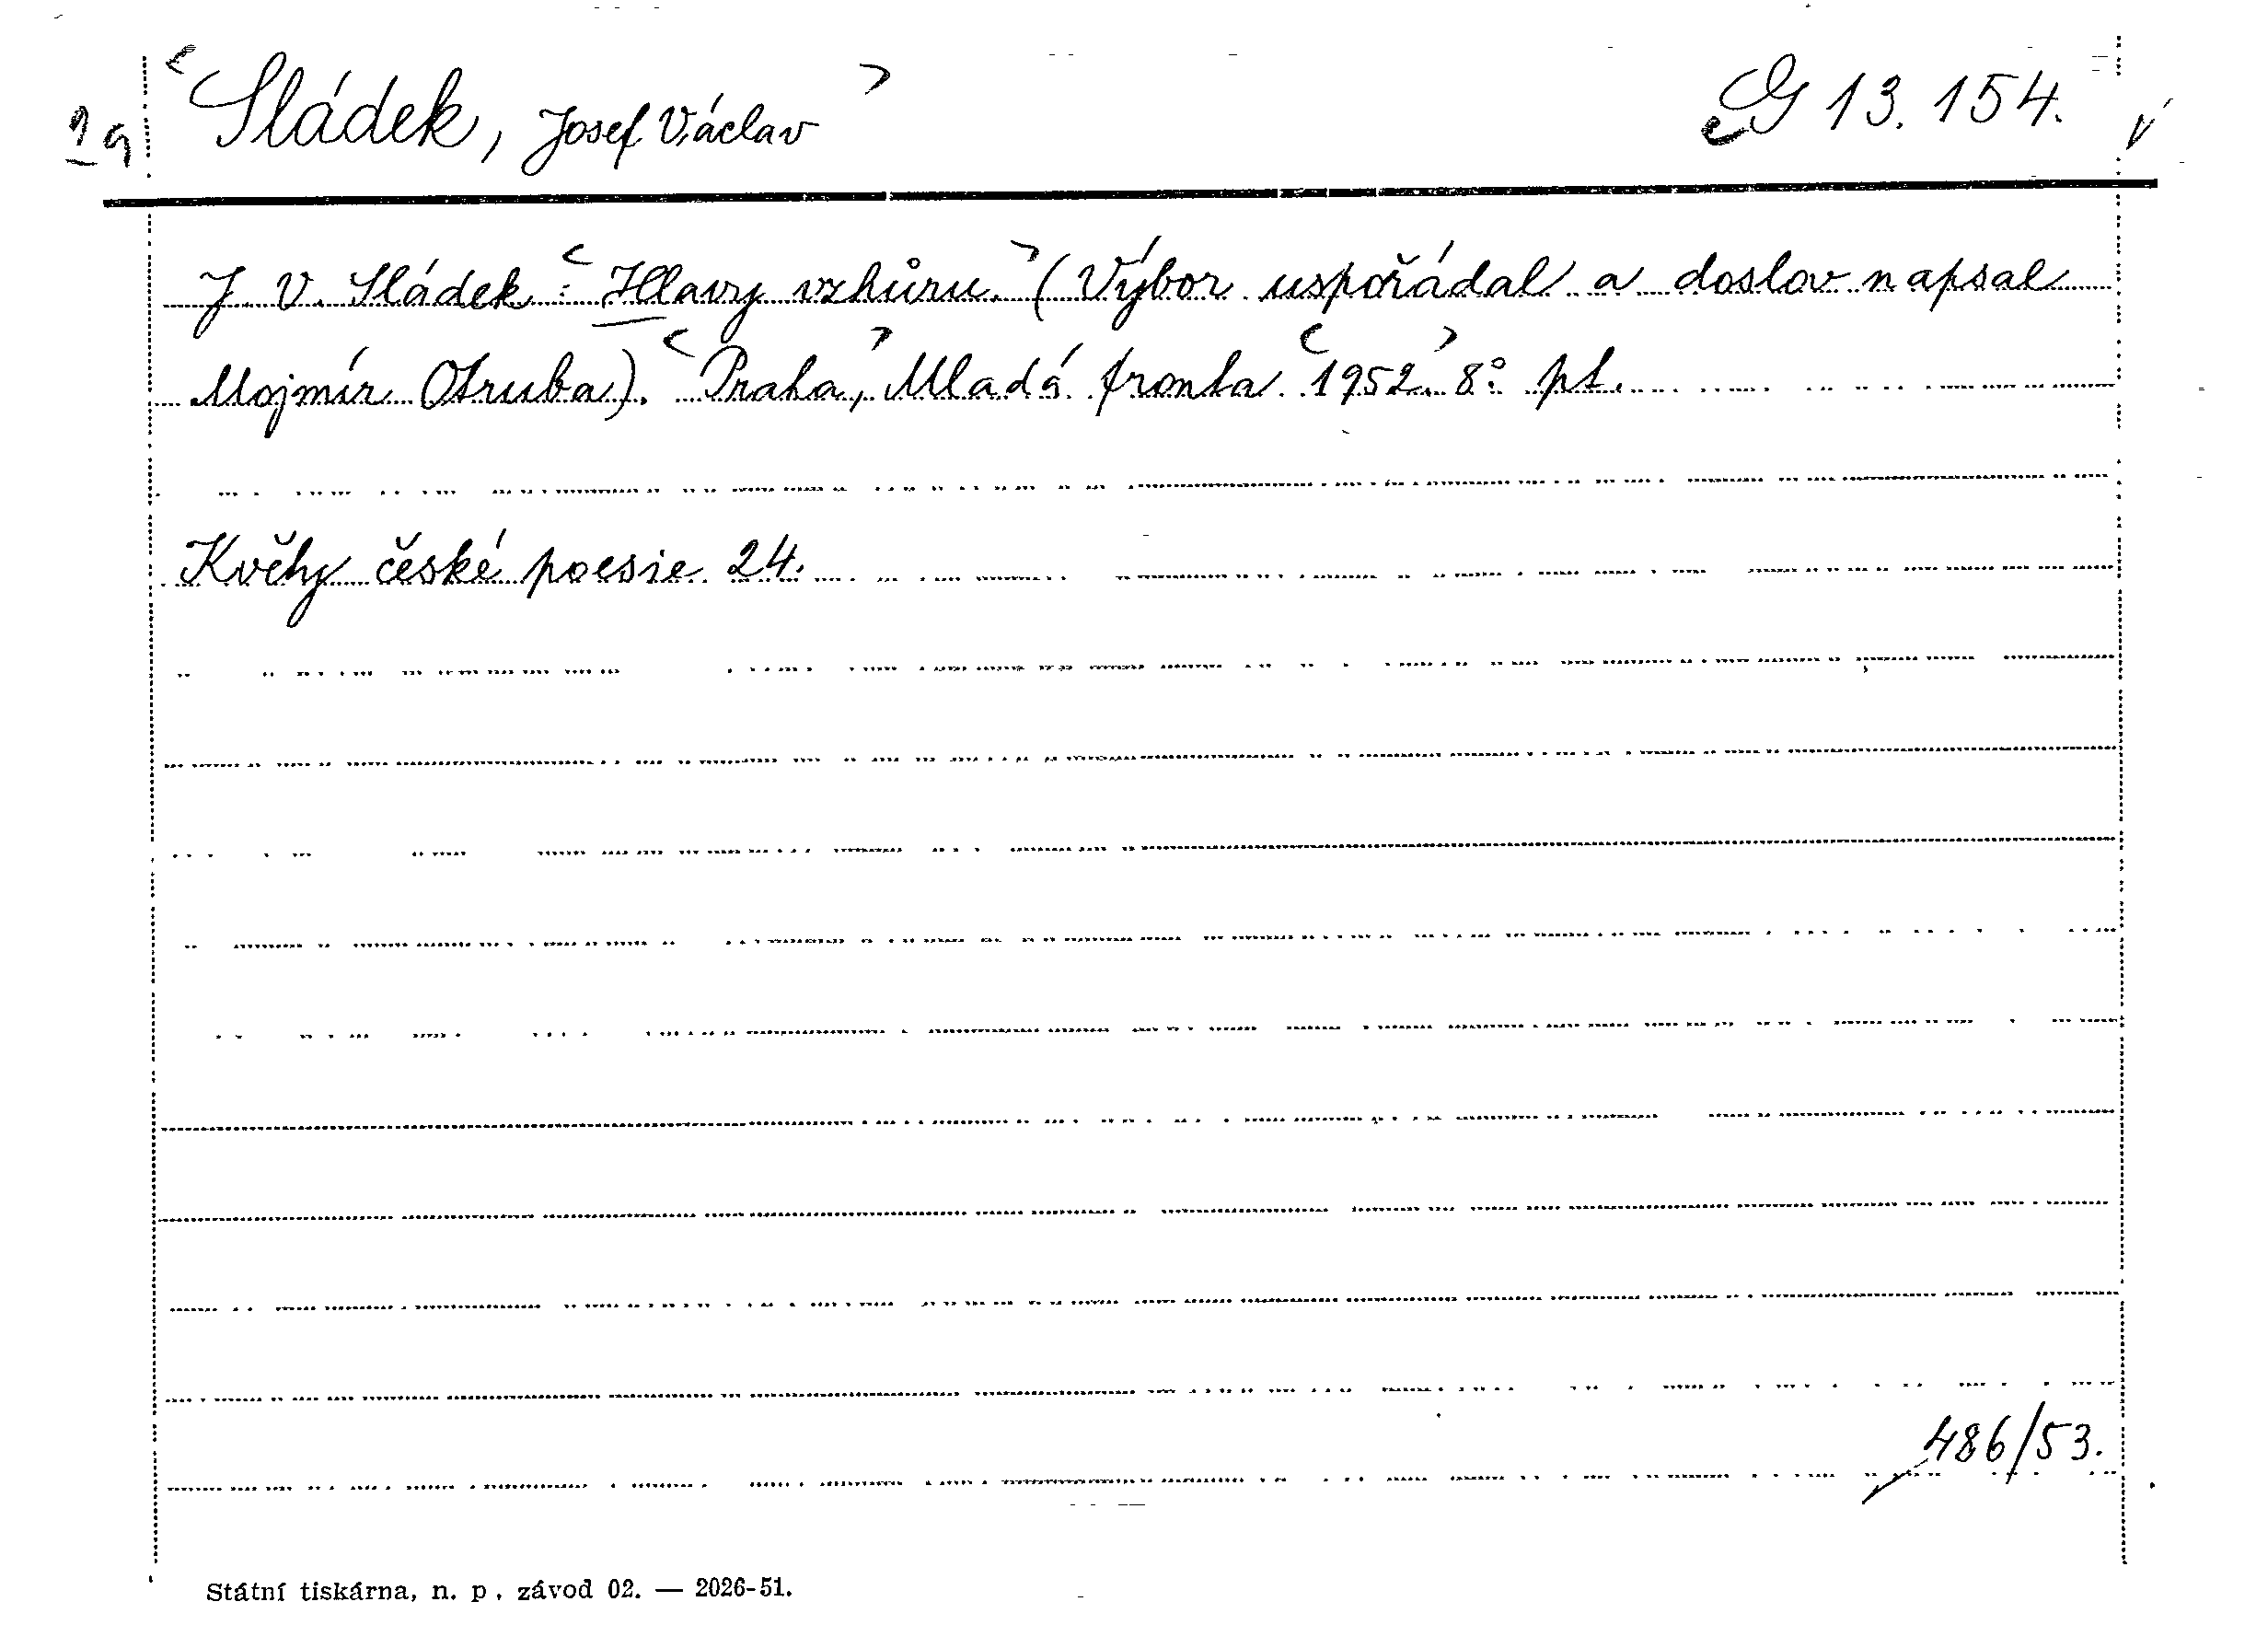 Sládek, Josef Václav G 13.154.
J. V. Sládek: Hlavy vzhůru. (Výbor uspořádal a doslov napsal
Mojmír Otruba). Praha, Mladá fronta 1952. 8° pt.
Květy české poesie 24.
486/53.
Státní tiskárna, n. p., závod 02. — 2026-51.